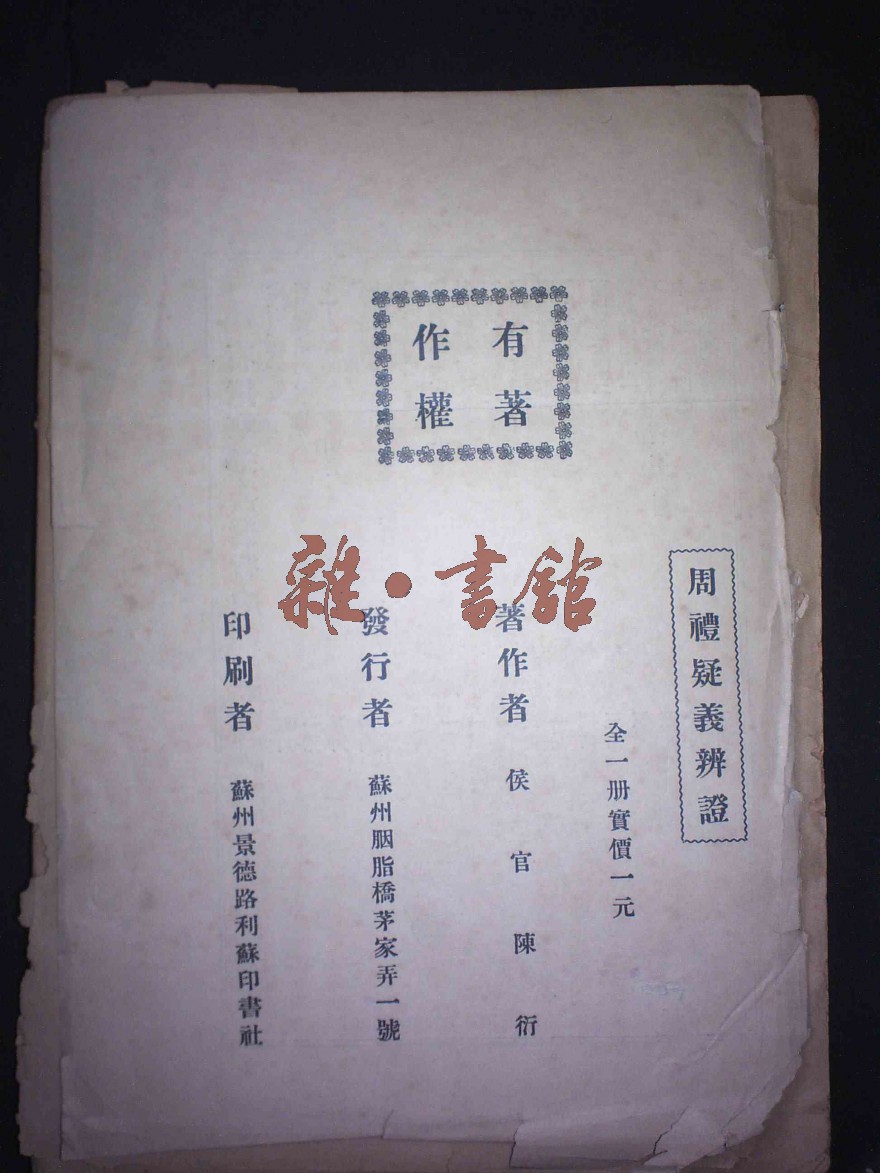 有著
作權
周禮疑義辨證
全一册實價一元
著作者 侯官陳衍
發行者 蘇州胭脂橋茅家弄一號
印刷者 蘇州景德路利蘇印書社
雜·書館